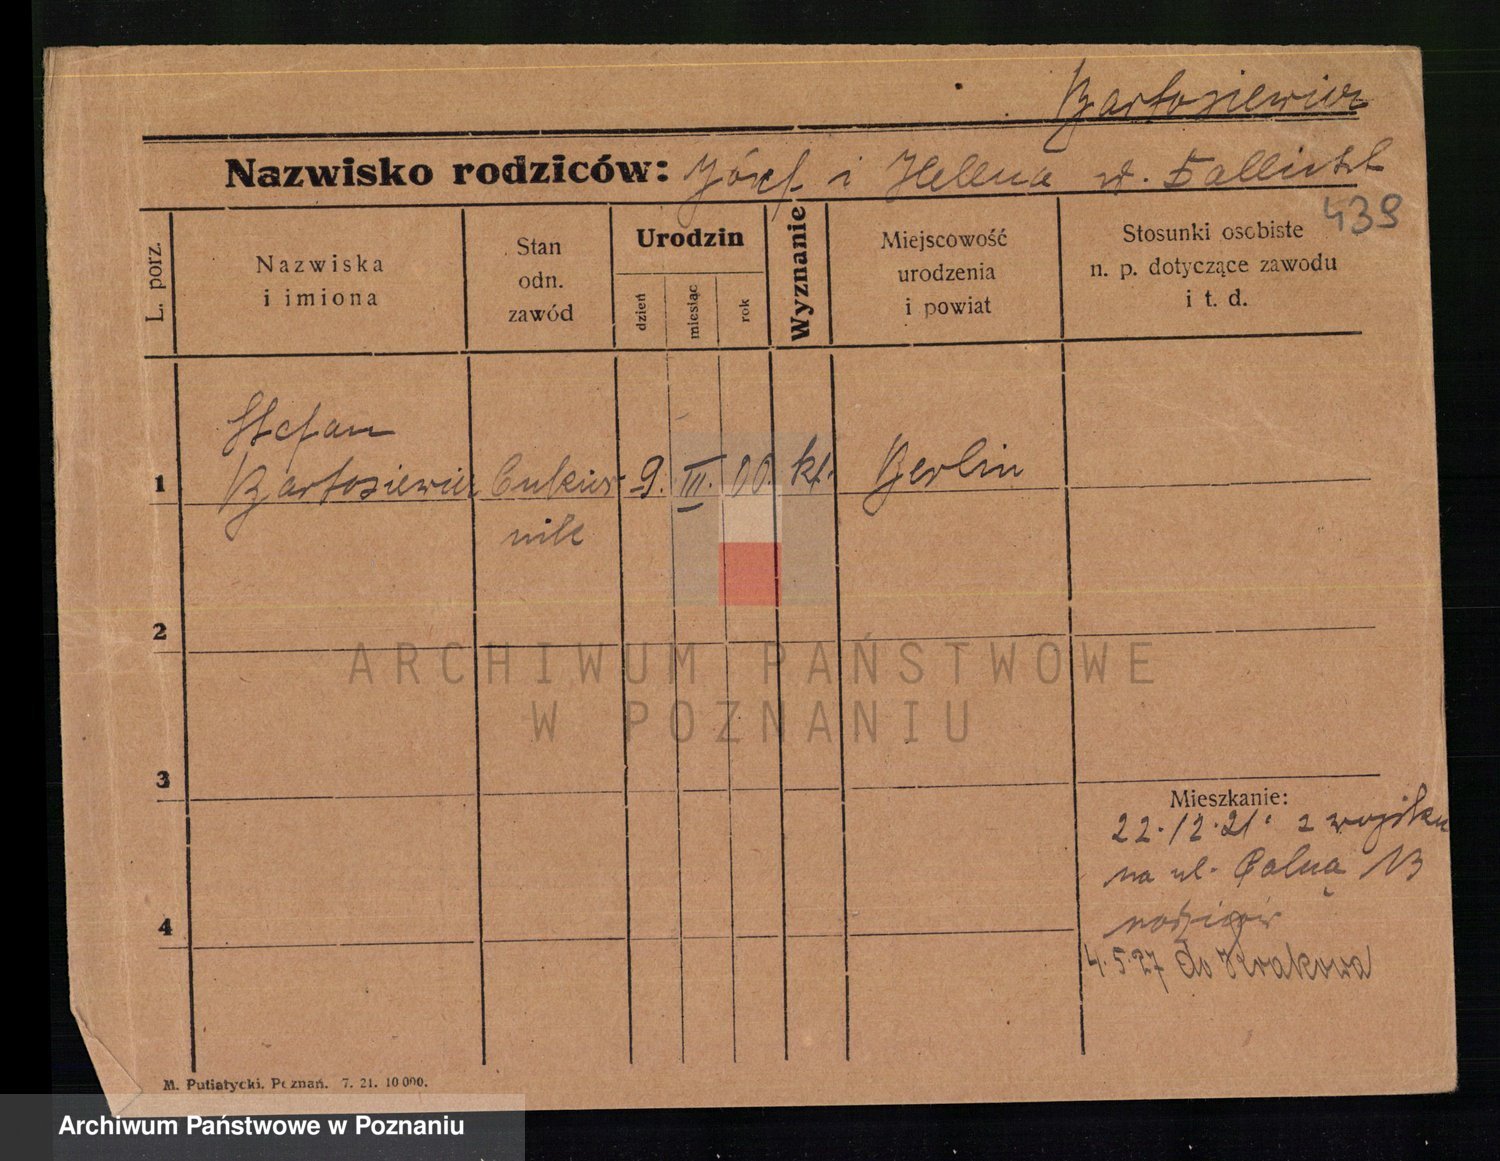 Bartosiewicz
Nazwisko rodziców: Józef i Hellena
439
L. porz.
Nazwiska
i imiona
Stan
odn.
zawód
Urodzin
dzień
miesiąc
rok
Wyznanie
Miejscowość
urodzenia
i powiat
Stosunki osobiste
n. p. dotyczące zawodu
i t. d.
Stefan
1 Bartosiewicz Cukier- 9. III. 00. kt. Berlin
nik
2
ARCHIWUM PAŃSTWOWE
W POZNANIU
3
Mieszkanie:
22.12.21. z wojska
na ul. Polną 13
rodziców
4
4.5.27 do Krakowa
M. Putiatycki, Poznań. 7. 21. 10 000.
Archiwum Państwowe w Poznaniu